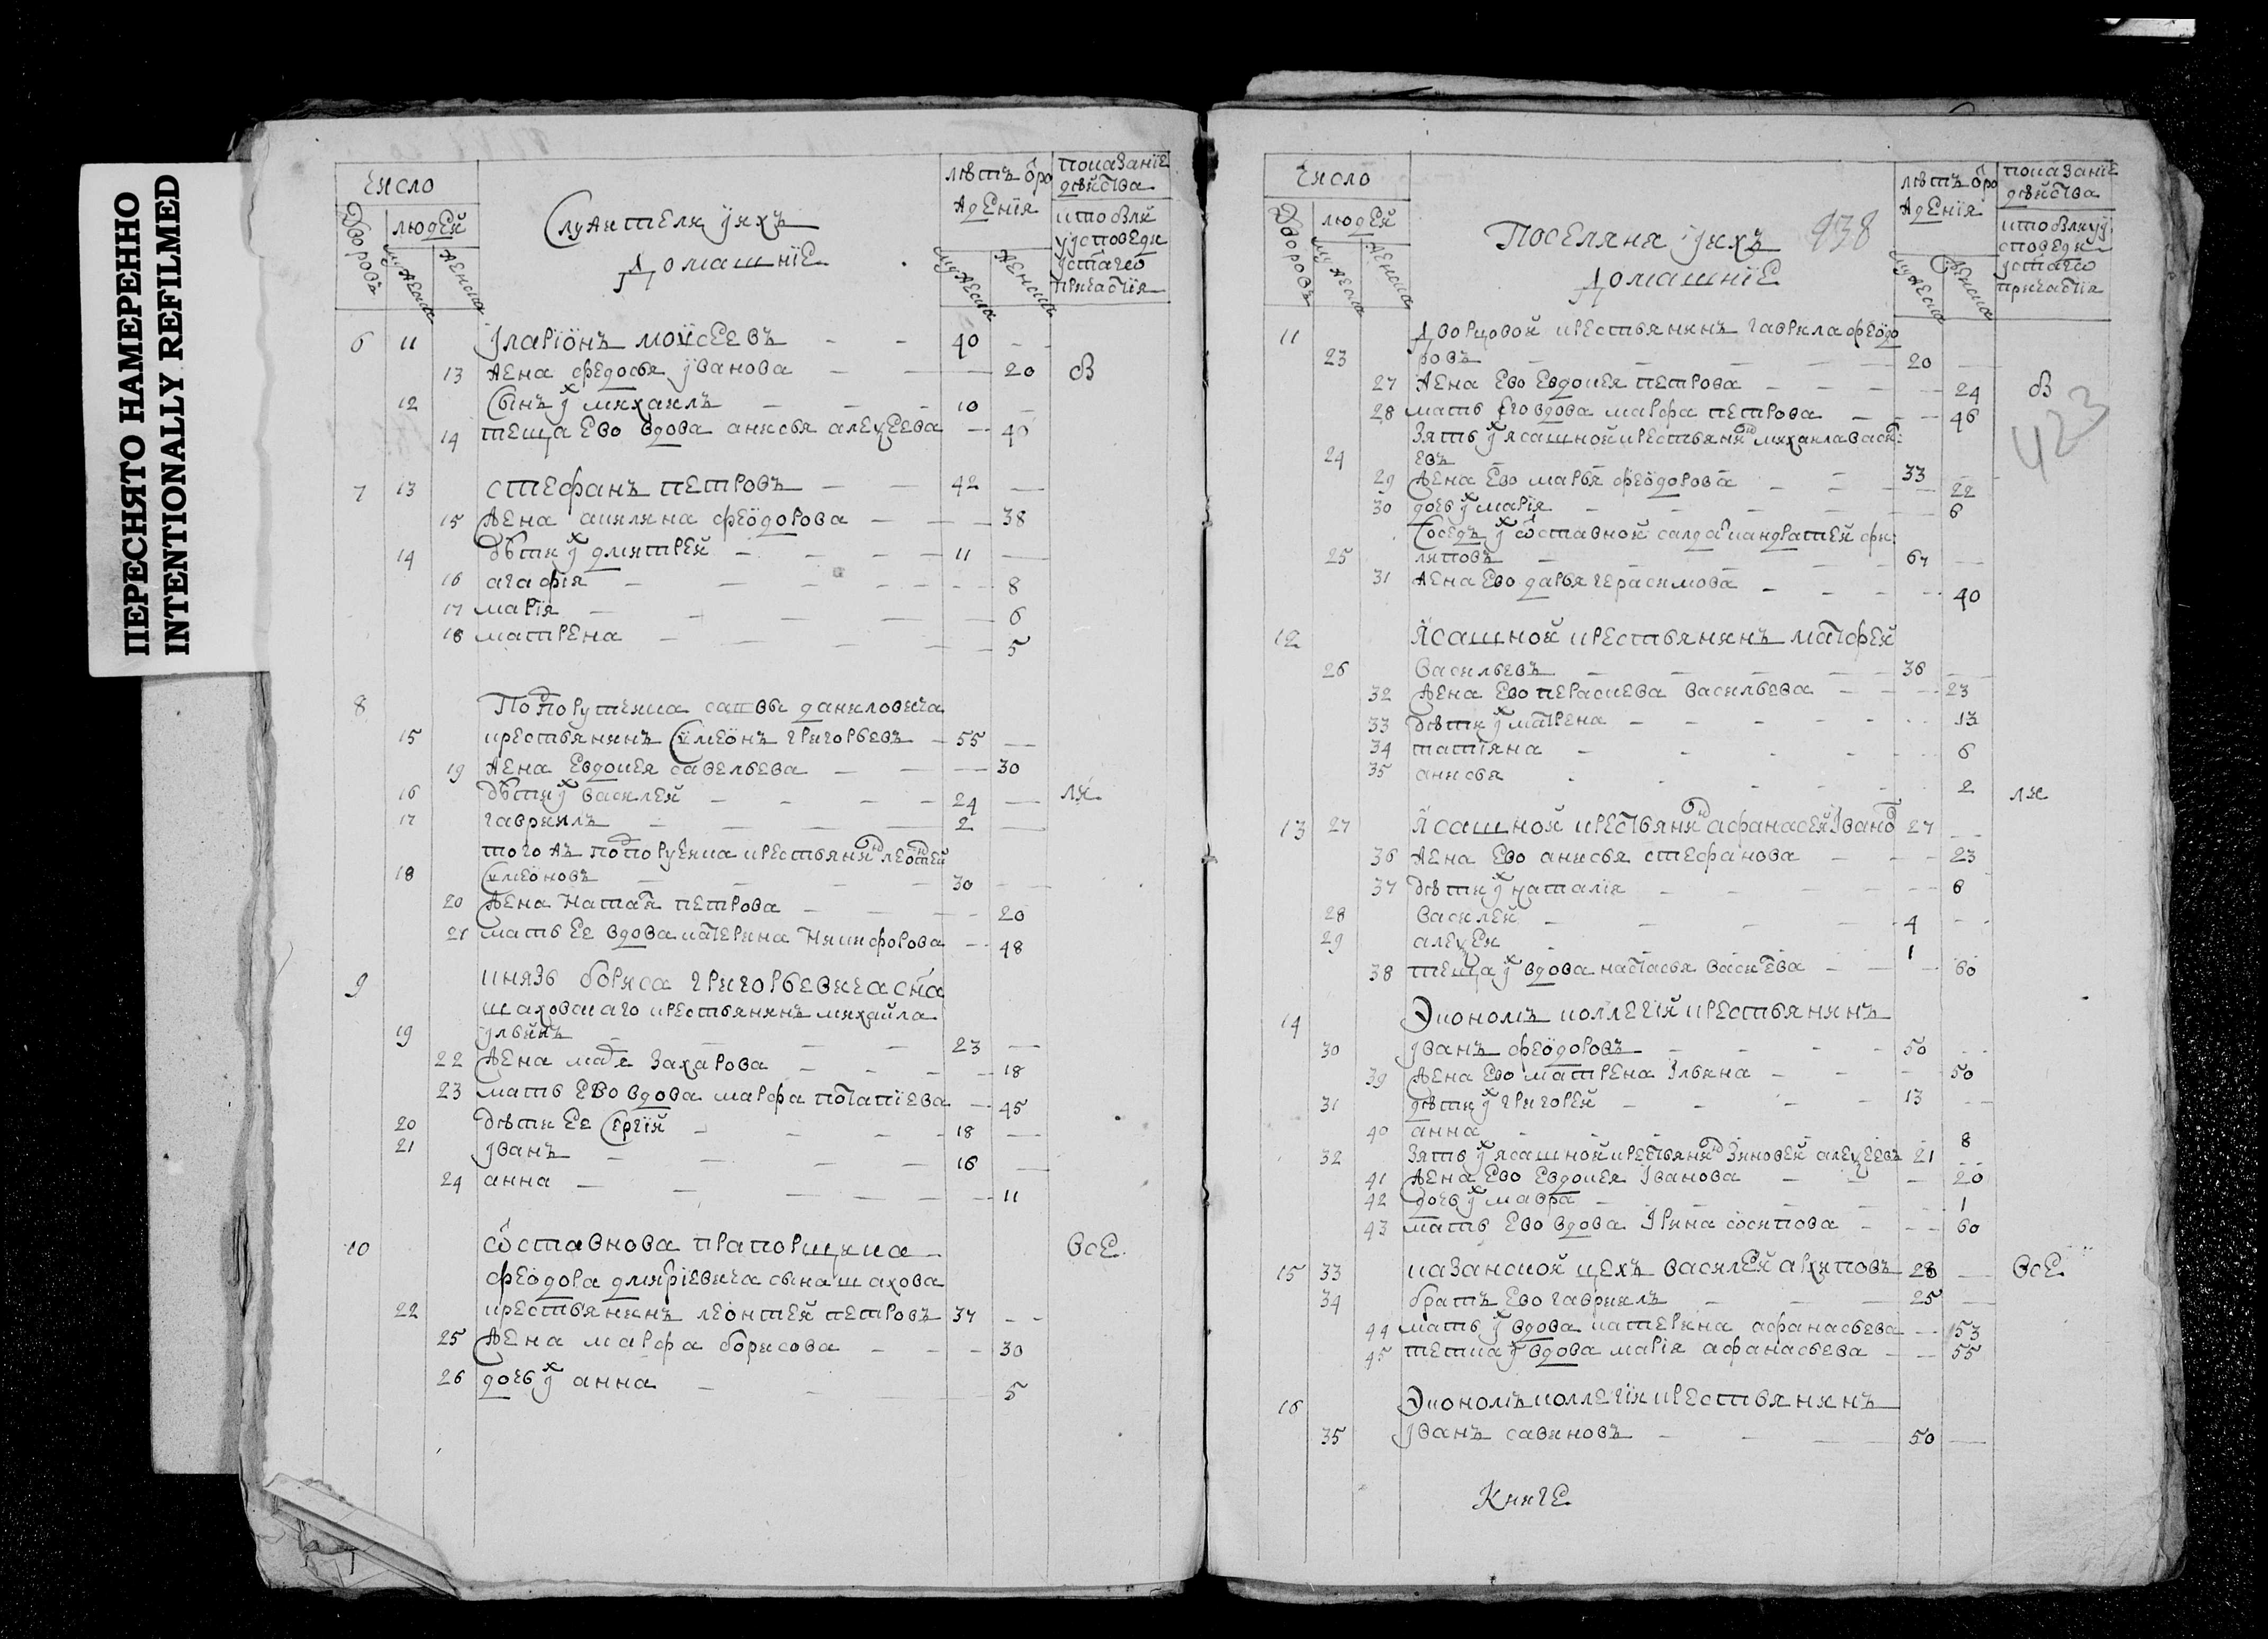 ПЕРЕСНЯТО НАМЕРЕННО
INTENTIONALLY REFILMED
Число
Дворовъ
людей
мужеска
женска
Служители ихъ
домашнїе
лѣтъ ѿ ро
жденїя
мужеска
женска
показанїе
дѣйства
кто былъ
у исповеди
и стаго
причастїя
6 11 Іларїонъ моѵсеевъ 40
13 жена федосья іванова 20 В
12 Сынъ їх михаилъ 10
14 теща ево вдова анисья алеѯеева 40
7 13 стефанъ петровъ 42
15 жена акилина феодорова 38
14 дѣти їх дмитрей 11
16 агафїя 8
17 марїя 6
18 матрена 5
8 Подпорутчика саввы даниловича
15 крестьянинъ Сѵмеонъ григорьевъ 55
19 жена Евдокея савельева 30
16 дѣти їх василей 24
17 гаврїилъ 2
того жъ подпоручика крестьянинъ леонтей
18 Сѵмеоновъ 30
20 жена Наталя петрова 20
21 мать ее вдова катерина Никифорова 48
9 князь бориса григорьевича сна
шаховскаго крестьянинъ михайла
19 ильинъ 23
22 жена марья захарова 18
23 мать Ево вдова марфа потапїева 45
20 дѣти Ее Сергїй 18
21 Іванъ 16
24 анна 11
10 ѿставнова прапорщика ВсЕ
феодора дмитрїевича сына шахова
22 крестьянинъ леонтей петровъ 37
25 Жена марфа борисова 30
26 дочь їх анна 5
Число
Дворовъ
людей
мужеска
женска
Поселяна ихъ 938
домашнїе
лѣтъ ѿ ро
жденїя
мужеска
женска
показанїе
дѣйства
кто былъ у и
споведи
и стаго
причастїя
11 Дворцовой крестьянинъ гаврила феодо
23 ровъ 20
27 Жена Ево Евдокея петрова 24 В
28 мать Его вдова марфа петрова 46
423
Зять їх ясашной крестьянинъ михаила васил:
24 евъ 33
29 Жена Ево марья феодорова 22
30 дочь їх марїя 6
Соседъ їх ѿставной салдат кандратей фи:
25 липовъ 67
31 Жена Ево дарья герасимова 40
12 Ясашной крестьянинъ матфей
26 Васильевъ 36
32 Жена Ево пераскева васильева 23
33 дѣти їх матрена 13
34 татїяна 6
35 анисья 2
13 27 Ясашной крестьянинъ афанасей Іванов 27
36 Жена Ево анисья стефанова 23
37 дѣти їх наталїя 6
28 Василей 4
29 алеѯей 1
38 теща їх вдова настасья васильева 60
14 Экономъ коллегїй крестьянинъ
30 Іванъ феодоровъ 50
39 Жена Ево матрена Ільина 50
31 дѣти їх григорей 13
40 анна 8
32 Зять їх ясашной крестьянинъ Зиновей алеѯеевъ 21
41 Жена Ево Евдокея Іванова 20
42 дочь їх мавра 1
43 мать Ево вдова Ірина осипова 60
15 33 казанской цехъ василей архиповъ 28 ВсЕ
34 братъ Ево гаврїилъ 25
44 мать їх вдова катерина афанасьева 53
45 тетка їх вдова марїя афанасьева 55
16 Экономъ коллегїи крестьянинъ
35 Іванъ савиновъ 50